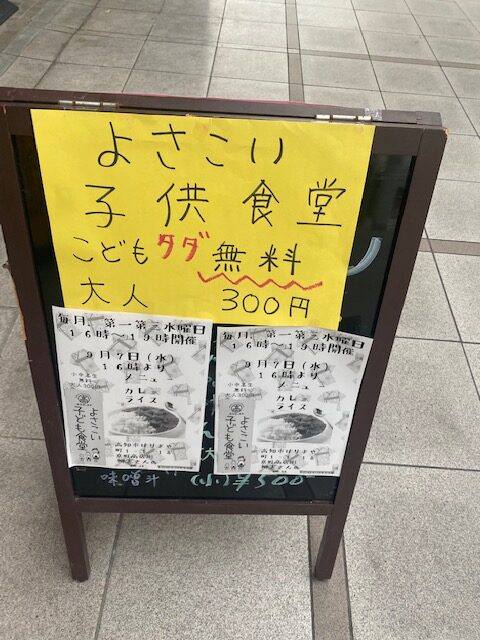 よさこい
子供食堂
こども タダ 無料
大人 300円
毎月、第一第三水曜日
16時〜19時開催
9月7日(水)
16時より
メニュ
カレー
ライス
小中高生
無料
大人300円
よさこい
子ども食堂
高知市はりまや
町1-
毎月、第一第三水曜日
16時〜19時開催
9月7日(水)
16時より
メニュ
カレー
ライス
小中高生
無料
大人300円
よさこい
子ども食堂
高知市はりまや
町1-
味噌
(小)¥500